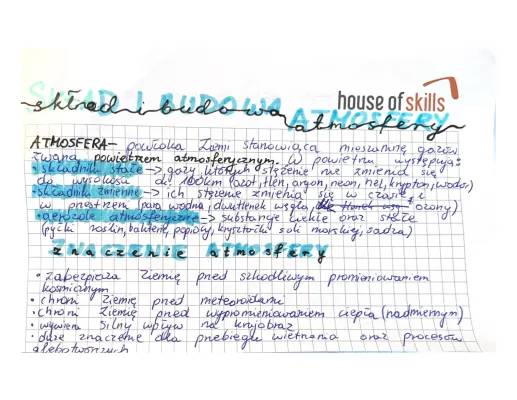 SKŁAD I BUDOWA ATMOSFERY
skład i budowa atmosfery
house of skills
ATMOSFERA - powłoka Ziemi stanowiąca mieszaninę gazów
zwaną powietrzem atmosferycznym. W powietrzu występują:
• składniki stałe -> gazy których stężenie nie zmienia się
do wysokości do 100km (azot, tlen, argon, neon, hel, krypton, wodór)
• składniki zmienne -> ich stężenie zmienia się w czasie i
w przestrzeni (para wodna, dwutlenek węgla, ozony)
• aerozole atmosferyczne -> substancje ciekłe oraz stałe
(pyłki roślin, bakterie, popioły, kryształki soli morskiej, sadza)
ZNACZENIE ATMOSFERY
• zabezpiecza Ziemię przed szkodliwym promieniowaniem
kosmicznym
• chroni Ziemię przed meteoroidami
• chroni Ziemię przed wypromieniowaniem ciepła (nadmiernym)
• wywiera silny wpływ na krajobraz
• duże znaczenie dla przebiegu wietrzenia oraz procesów
glebotwórczych